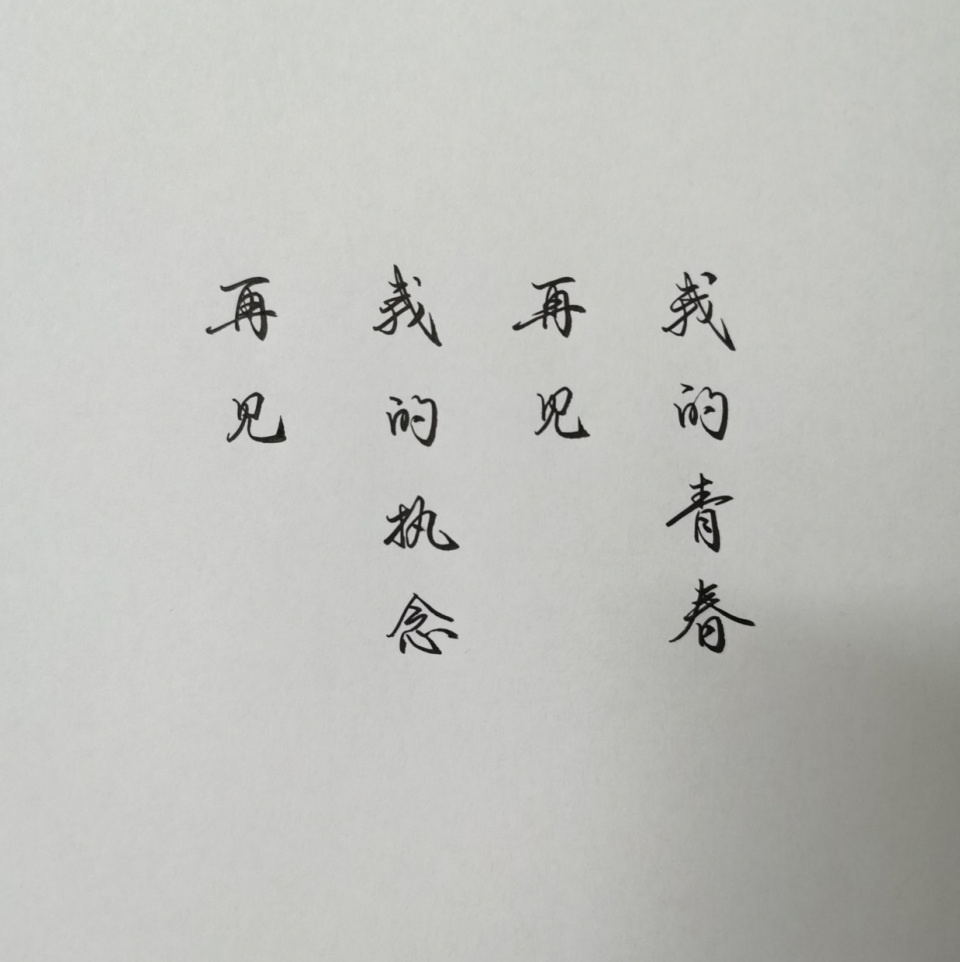 我的青春
再见
我的执念
再见